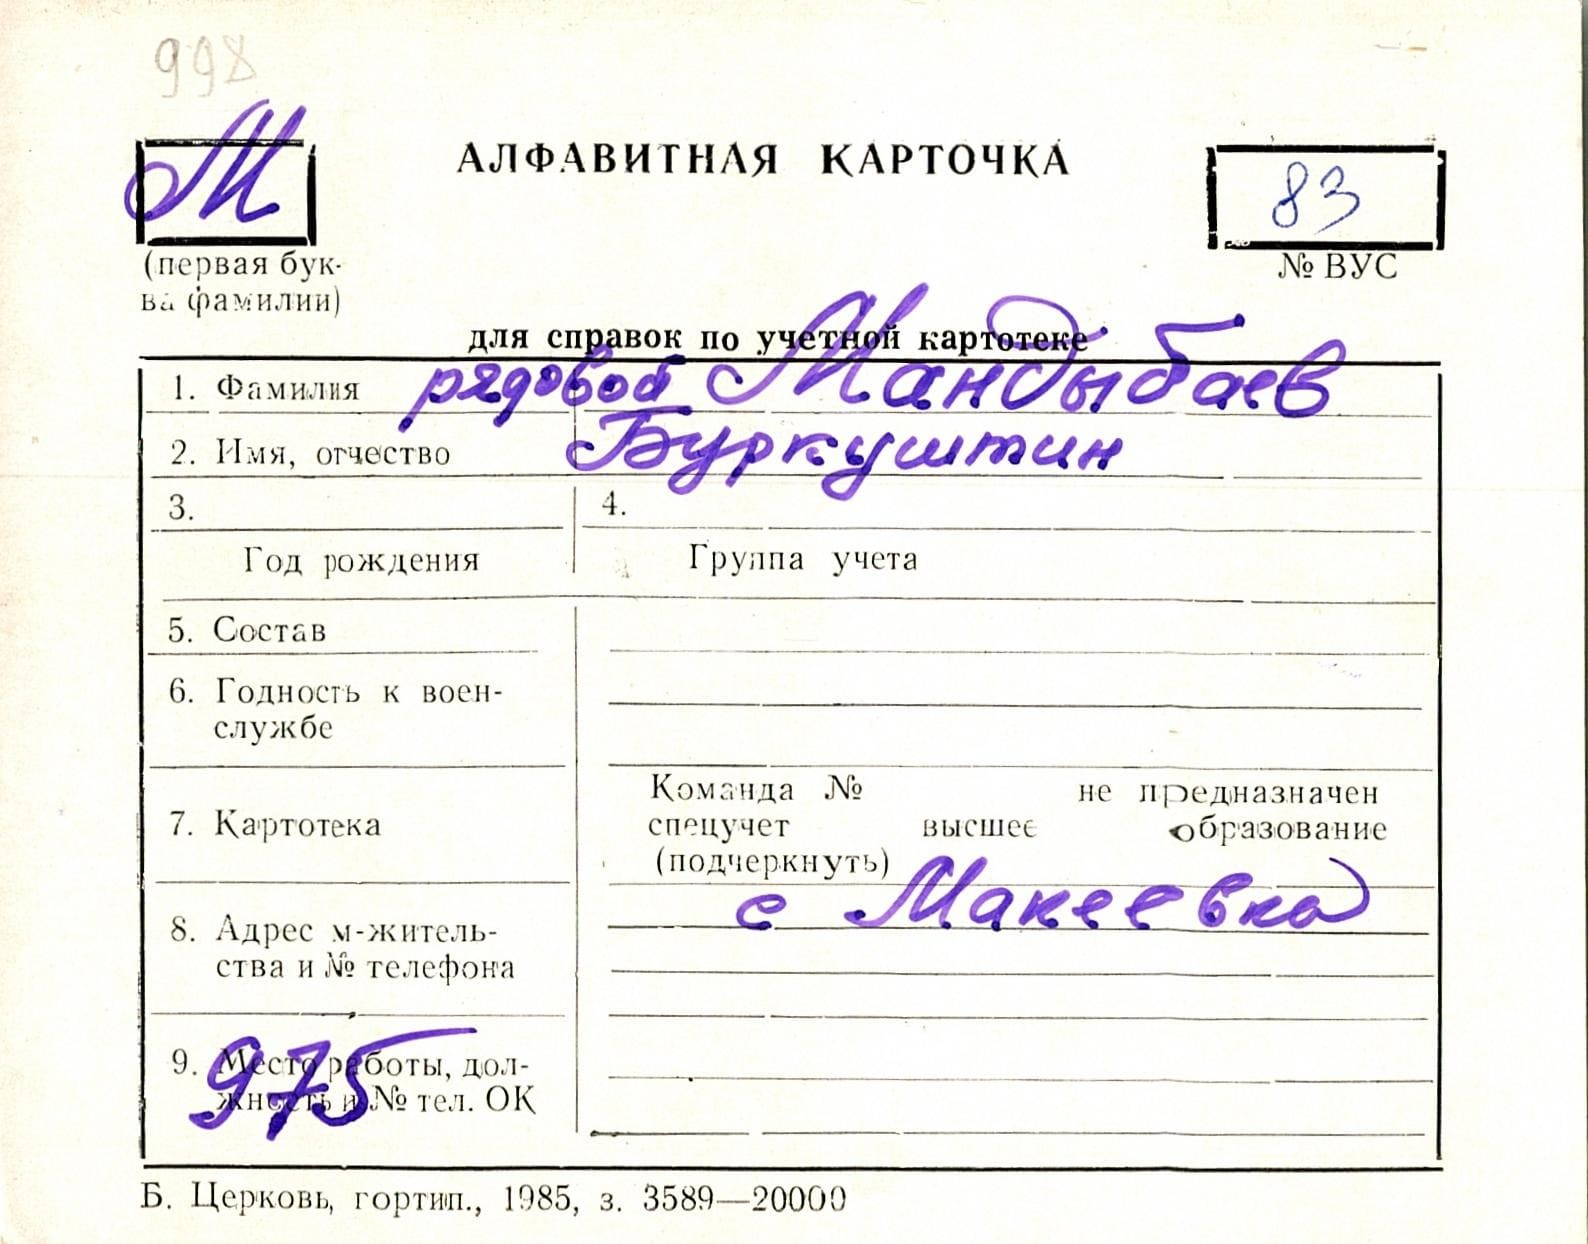 998
М
АЛФАВИТНАЯ КАРТОЧКА
83
(первая бук-
ва фамилии)
№ ВУС
для справок по учетной картотеке
1. Фамилия рядовой Мандыбаев
2. Имя, отчество Буркуштин
3.
4.
Год рождения
Группа учета
5. Состав
6. Годность к воен-
службе
7. Картотека
Команда № не предназначен
спецучет высшее образование
(подчеркнуть)
8. Адрес м-житель-
ства и № телефона
с Макеевка
9. Место работы, дол-
жность и № тел. ОК
975
Б. Церковь, гортип., 1985, з. 3589—20000